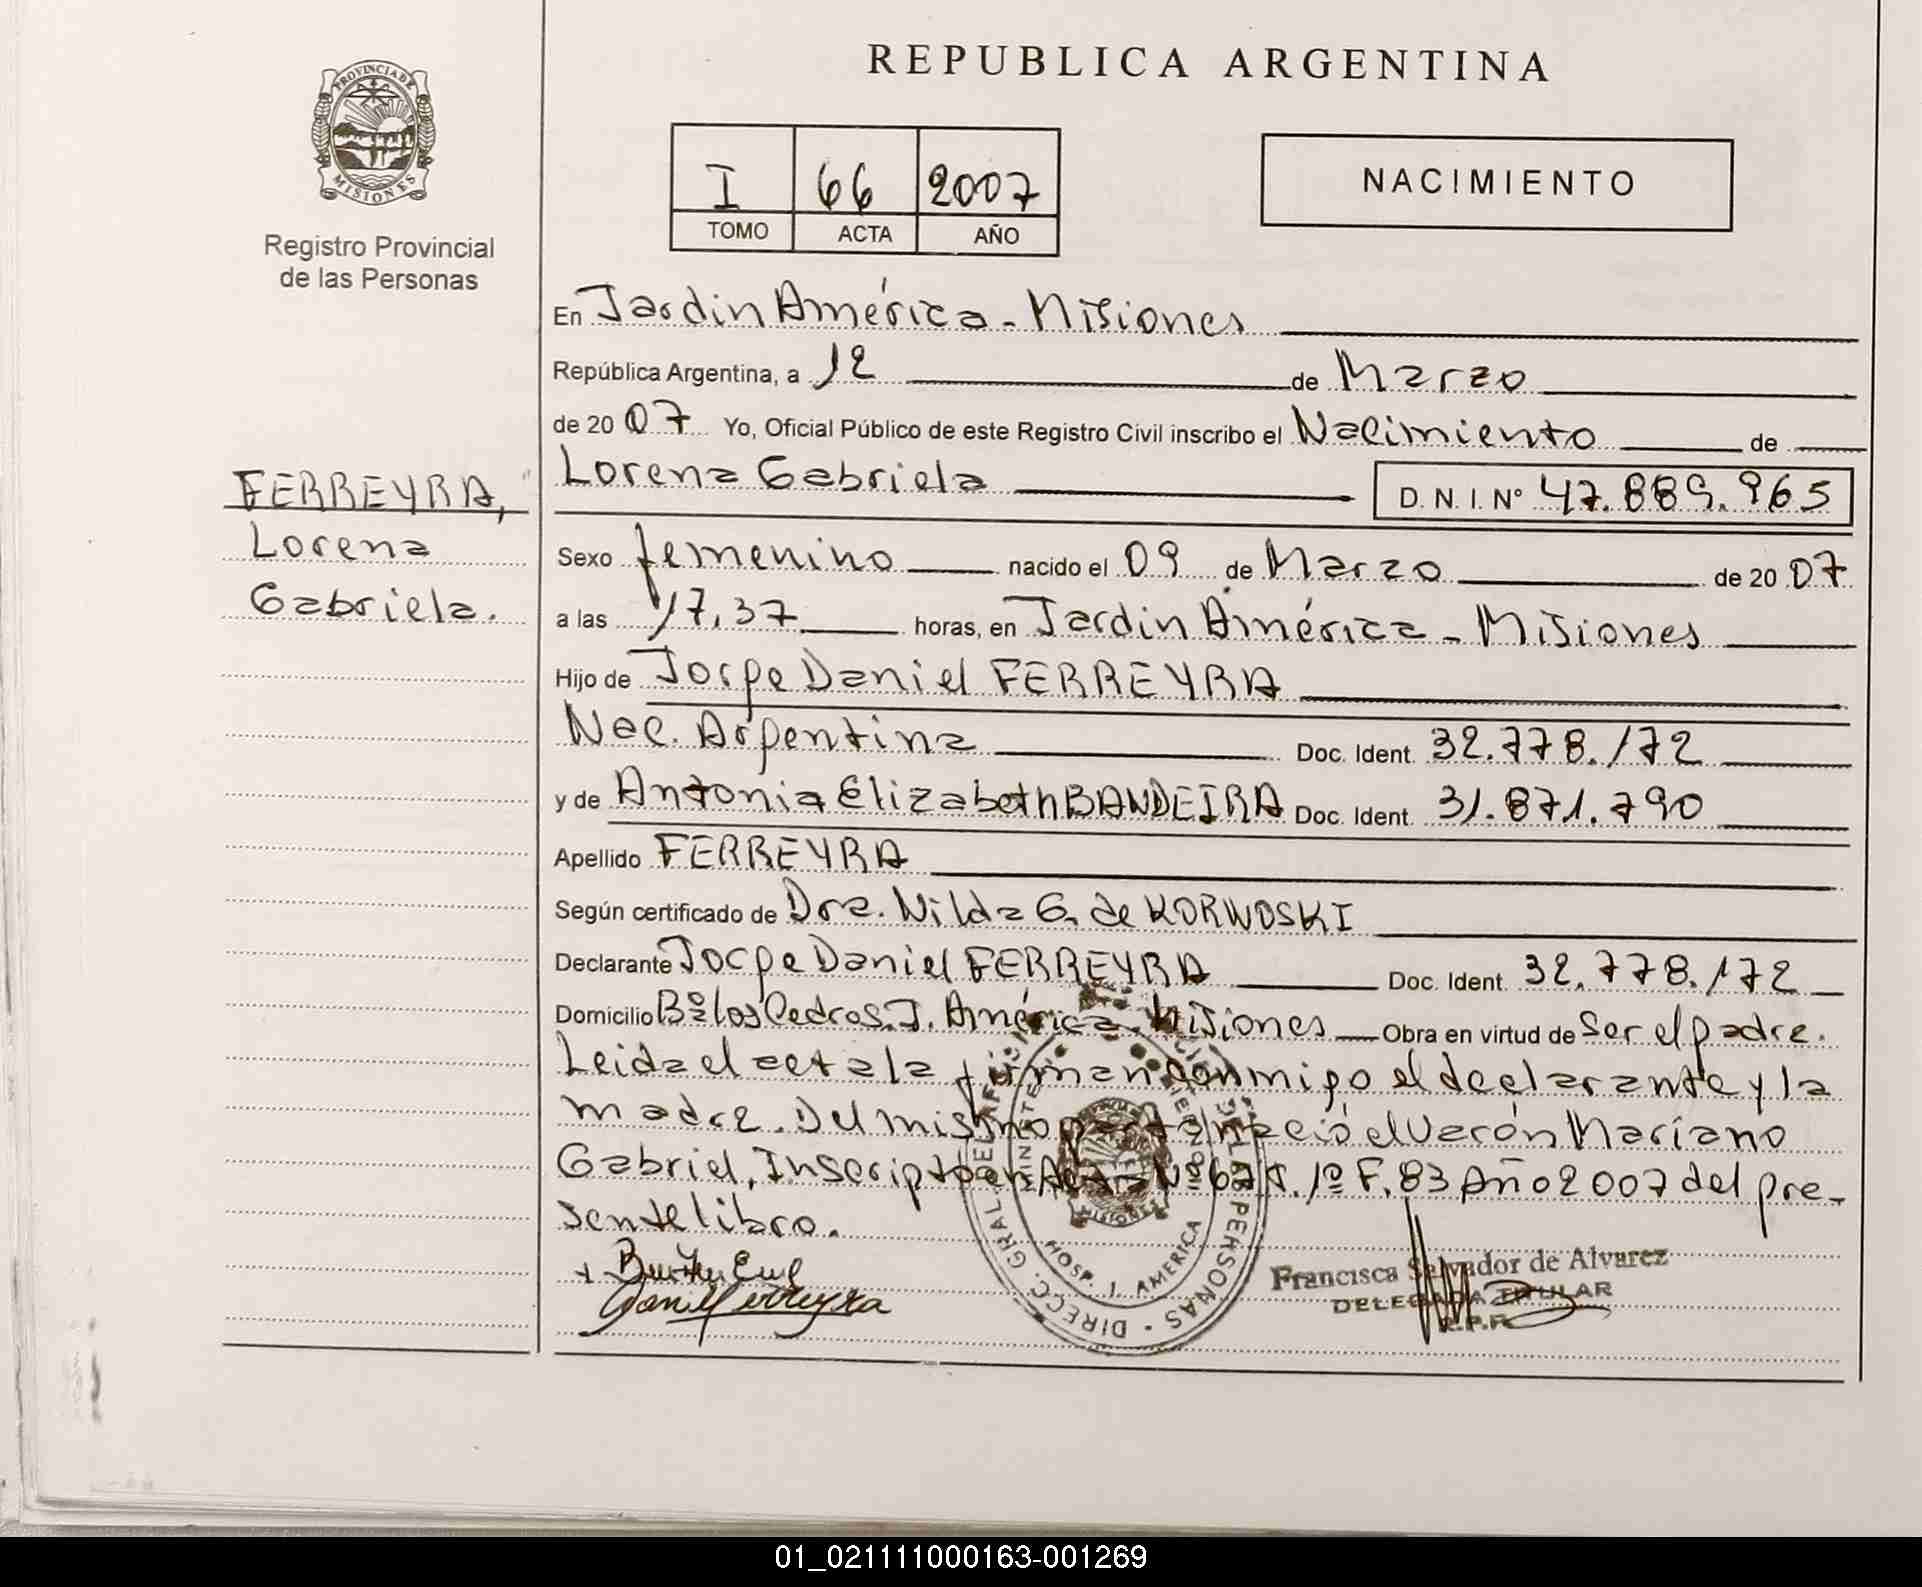 REPUBLICA ARGENTINA
PROVINCIA DE
MISIONES
Registro Provincial
de las Personas
I 66 2007
TOMO ACTA AÑO
NACIMIENTO
En Jardin América - Misiones
República Argentina, a 12 de Marzo
de 20 07 Yo, Oficial Público de este Registro Civil inscribo el Nacimiento de
Lorena Gabriela D. N. I. Nº 47.889.965
FERREYRA,
Lorena
Gabriela.
Sexo femenino nacido el 09 de Marzo de 20 07
a las 17,37 horas, en Jardin América - Misiones
Hijo de Jorge Daniel FERREYRA
Nac. Argentina Doc. Ident. 32.778.172
y de Antonia Elizabeth BANDEIRA Doc. Ident. 31.871.790
Apellido FERREYRA
Según certificado de Dra. Nilda G. de KORWOSKI
Declarante Jorge Daniel FERREYRA Doc. Ident. 32.778.172
Domicilio Bº los Cedros. J. América. Misiones Obra en virtud de Ser el padre.
Leida el acta la firman conmigo el declarante y la
madre. Del mismo parto nació el Varón Mariano
Gabriel, Inscripto en Acta Nº 67 T. 1º F. 83 Año 2007 del pre-
sente libro.
DIRECC. GRAL. PERSONAS
HOSP. J. AMERICA
MISIONES
Francisca Salvador de Alvarez
DELEGADA TITULAR
R.P.P.
01_021111000163-001269